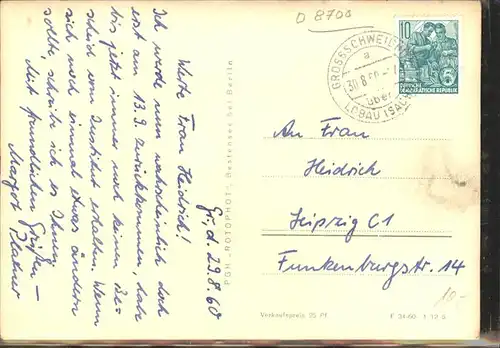 D 8700
Gr. d. 29.8.60
Werte Frau Heidrich!
Ich werde nun wahrscheinlich doch
erst am 13.9. zurückkommen, habe
bis jetzt immer noch keinen Be-
scheid vom Institut erhalten. Wenn
sich noch einmal etwas ändern
sollte, schreibe ich es Ihnen
Mit freundlichen Grüßen –
Margot
PGH „ROTOPHOT" Bestensee bei Berlin
GROSSSCHWEIDNITZ
a
30.8.60
über
LÖBAU (SACHS)
10
DEUTSCHE
DEMOKRATISCHE REPUBLIK
An Frau
Heidrich
Leipzig C1
Funkenburgstr. 14
10.-
Verkaufspreis 25 Pf